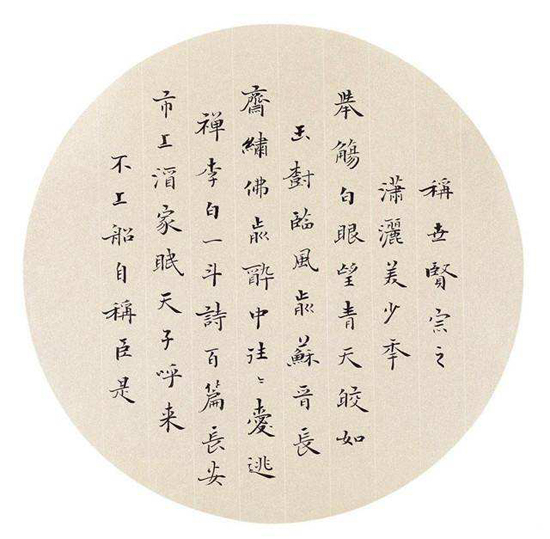 稱世賢宗之
瀟灑美少年
舉觴白眼望青天皎如
玉樹臨風前蘇晉長
齋繡佛前醉中往〻愛逃
禪李白一斗詩百篇長安
市上酒家眠天子呼来
不上船自稱臣是